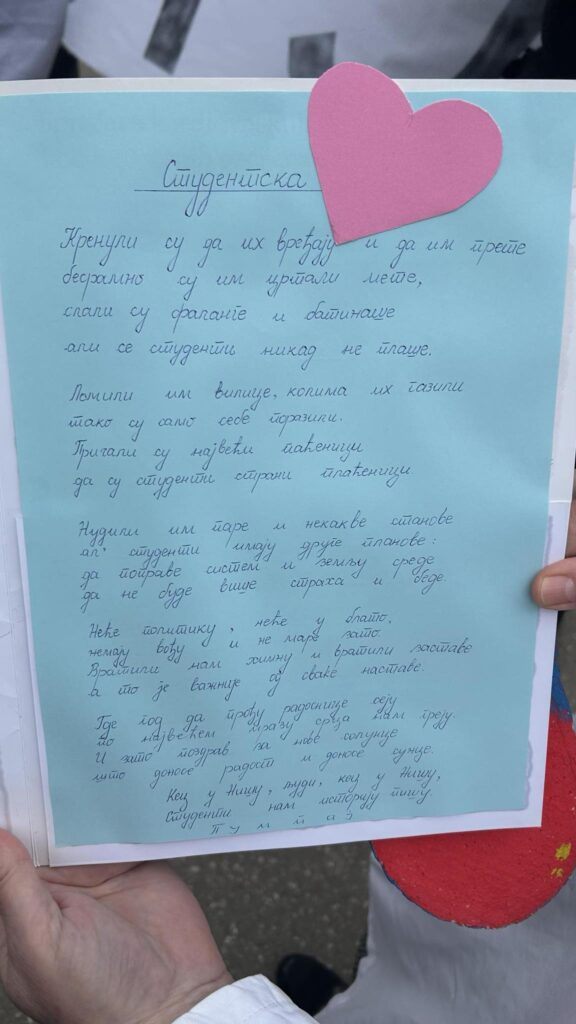 Студентска
Кренули су да их вређају и да им прете
бесрамно су им цртали мете,
слали су фаланге и батинаше
али се студенти никад не плаше.
Ломили им вилице, колима их газили
тако су само себе поразили.
Причали су највећи паћеници
да су студенти страни плаћеници
Нудили им паре и некакве станове
ал' студенти имају друге планове:
да поправе систем и земљу среде
да не буде више страха и беде.
Неће политику, неће у блато,
немају вођу и не маре зато.
Вратили нам химну и вратили заставе
а то је важније од сваке наставе.
Где год да прођу радоснице сеју
по највећем мразу срца нам греју.
И зато поздрав за нове сопунце
што доносе радост и доносе сунце.
Кец у Нишу, људи, кец у Нишу,
Студенти нам историју пишу